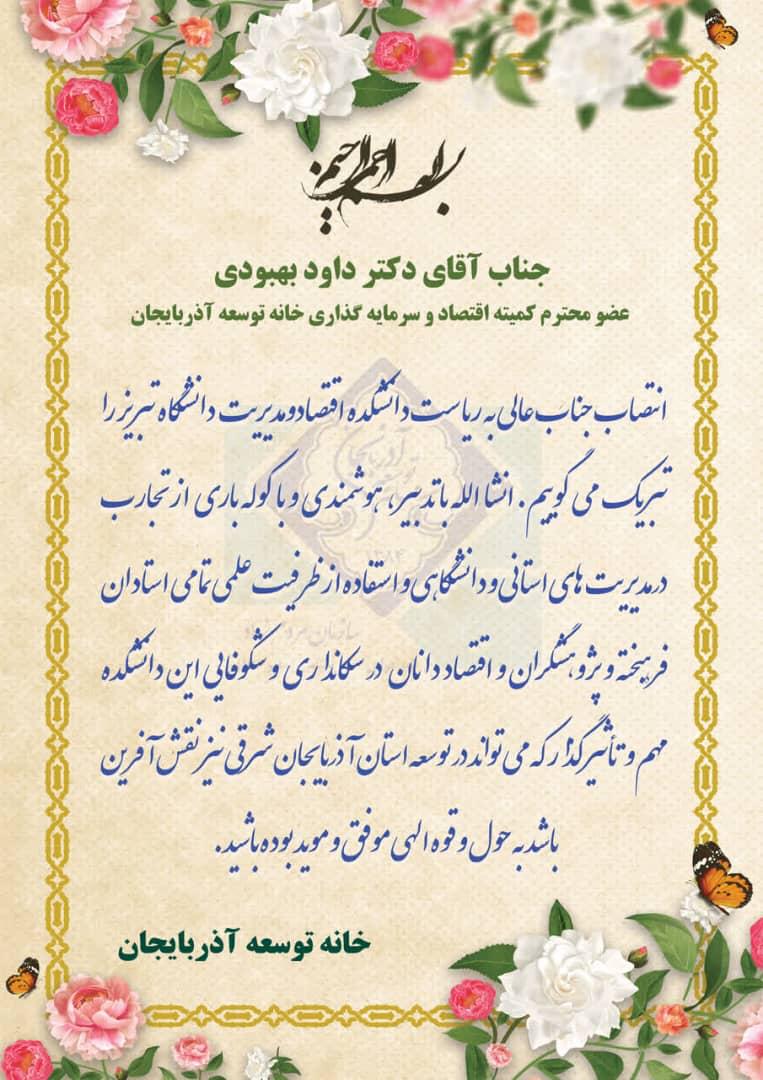 بسم الله الرحمن الرحیم
جناب آقای دکتر داود بهبودی
عضو محترم کمیته اقتصاد و سرمایه گذاری خانه توسعه آذربایجان
انتصاب جناب عالی به ریاست دانشکده اقتصاد و مدیریت دانشگاه تبریز را
تبریک می گوییم. انشا الله با تدبیر، هوشمندی و با کوله باری از تجارب
در مدیریت های استانی و دانشگاهی و استفاده از ظرفیت علمی تمامی استادان
فرهیخته و پژوهشگران و اقتصاد دانان در سکانداری و شکوفایی این دانشکده
مهم و تأثیرگذار که می تواند در توسعه استان آذربایجان شرقی نیز نقش آفرین
باشد به حول و قوه الهی موفق و موید بوده باشید.
خانه توسعه آذربایجان
۱۳۸۴